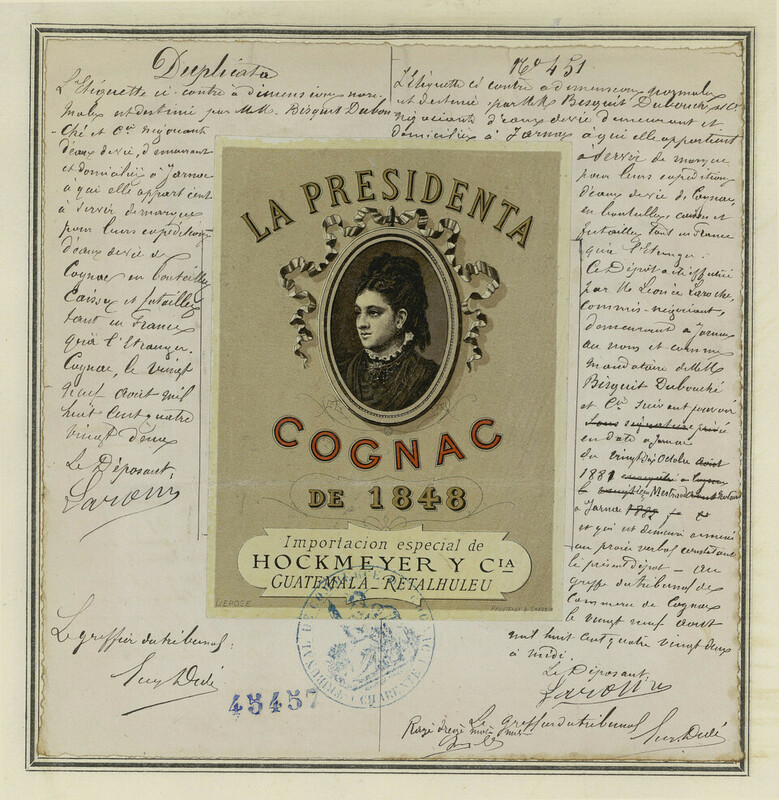 Duplicata
L'étiquette ci-contre à dimensions nor-
males est destiné par MM. Bisquit Dubou-
ché et Cie négociants
d'eaux de vie, demeurant
et domiciliés à Jarnac
à qui elle appartient
à servir de marque
pour leurs expéditions
d'eaux de vie de
Cognac en bouteilles
Caisses et futailles
tant en France
qu'à l'Etranger.
Cognac, le vingt
neuf août mil
huit cent quatre
vingt deux
Le Déposant,
Laroche
Le greffier du tribunal:
No 451
L'étiquette ci contre à dimensions normales
est destinée par MM Bisquit Dubouché et Cie
négociants d'eaux de vie demeurant et
domiciliés à Jarnac à qui elle appartient
à servir de marque
pour leurs expéditions
d'eaux de vie de Cognac,
en bouteilles caisses et
futailles tant en France
qu'à l'Etranger.
Ce Dépôt a été effectué
par M Léonce Laroche,
commis-négociant,
demeurant à Jarnac
au nom et comme
mandataire de MM
Bisquit Dubouché
et Cie suivant pouvoir
sous signature privée
en date à Jarnac
du vingt dix Octobre août
1881
à Jarnac 1882
et qui est demeuré annexé
au procès verbal constatant
le présent dépôt - au
greffe du tribunal de
Commerce de Cognac
le vingt neuf août
mil huit cent quatre vingt deux
à midi
Le Déposant,
Laroche
Le greffier du tribunal
LA PRESIDENTA
COGNAC
DE 1848
Importacion especial de
HOCKMEYER Y CIA
GUATEMALA - RETALHULEU
DEPOSÉ
45457